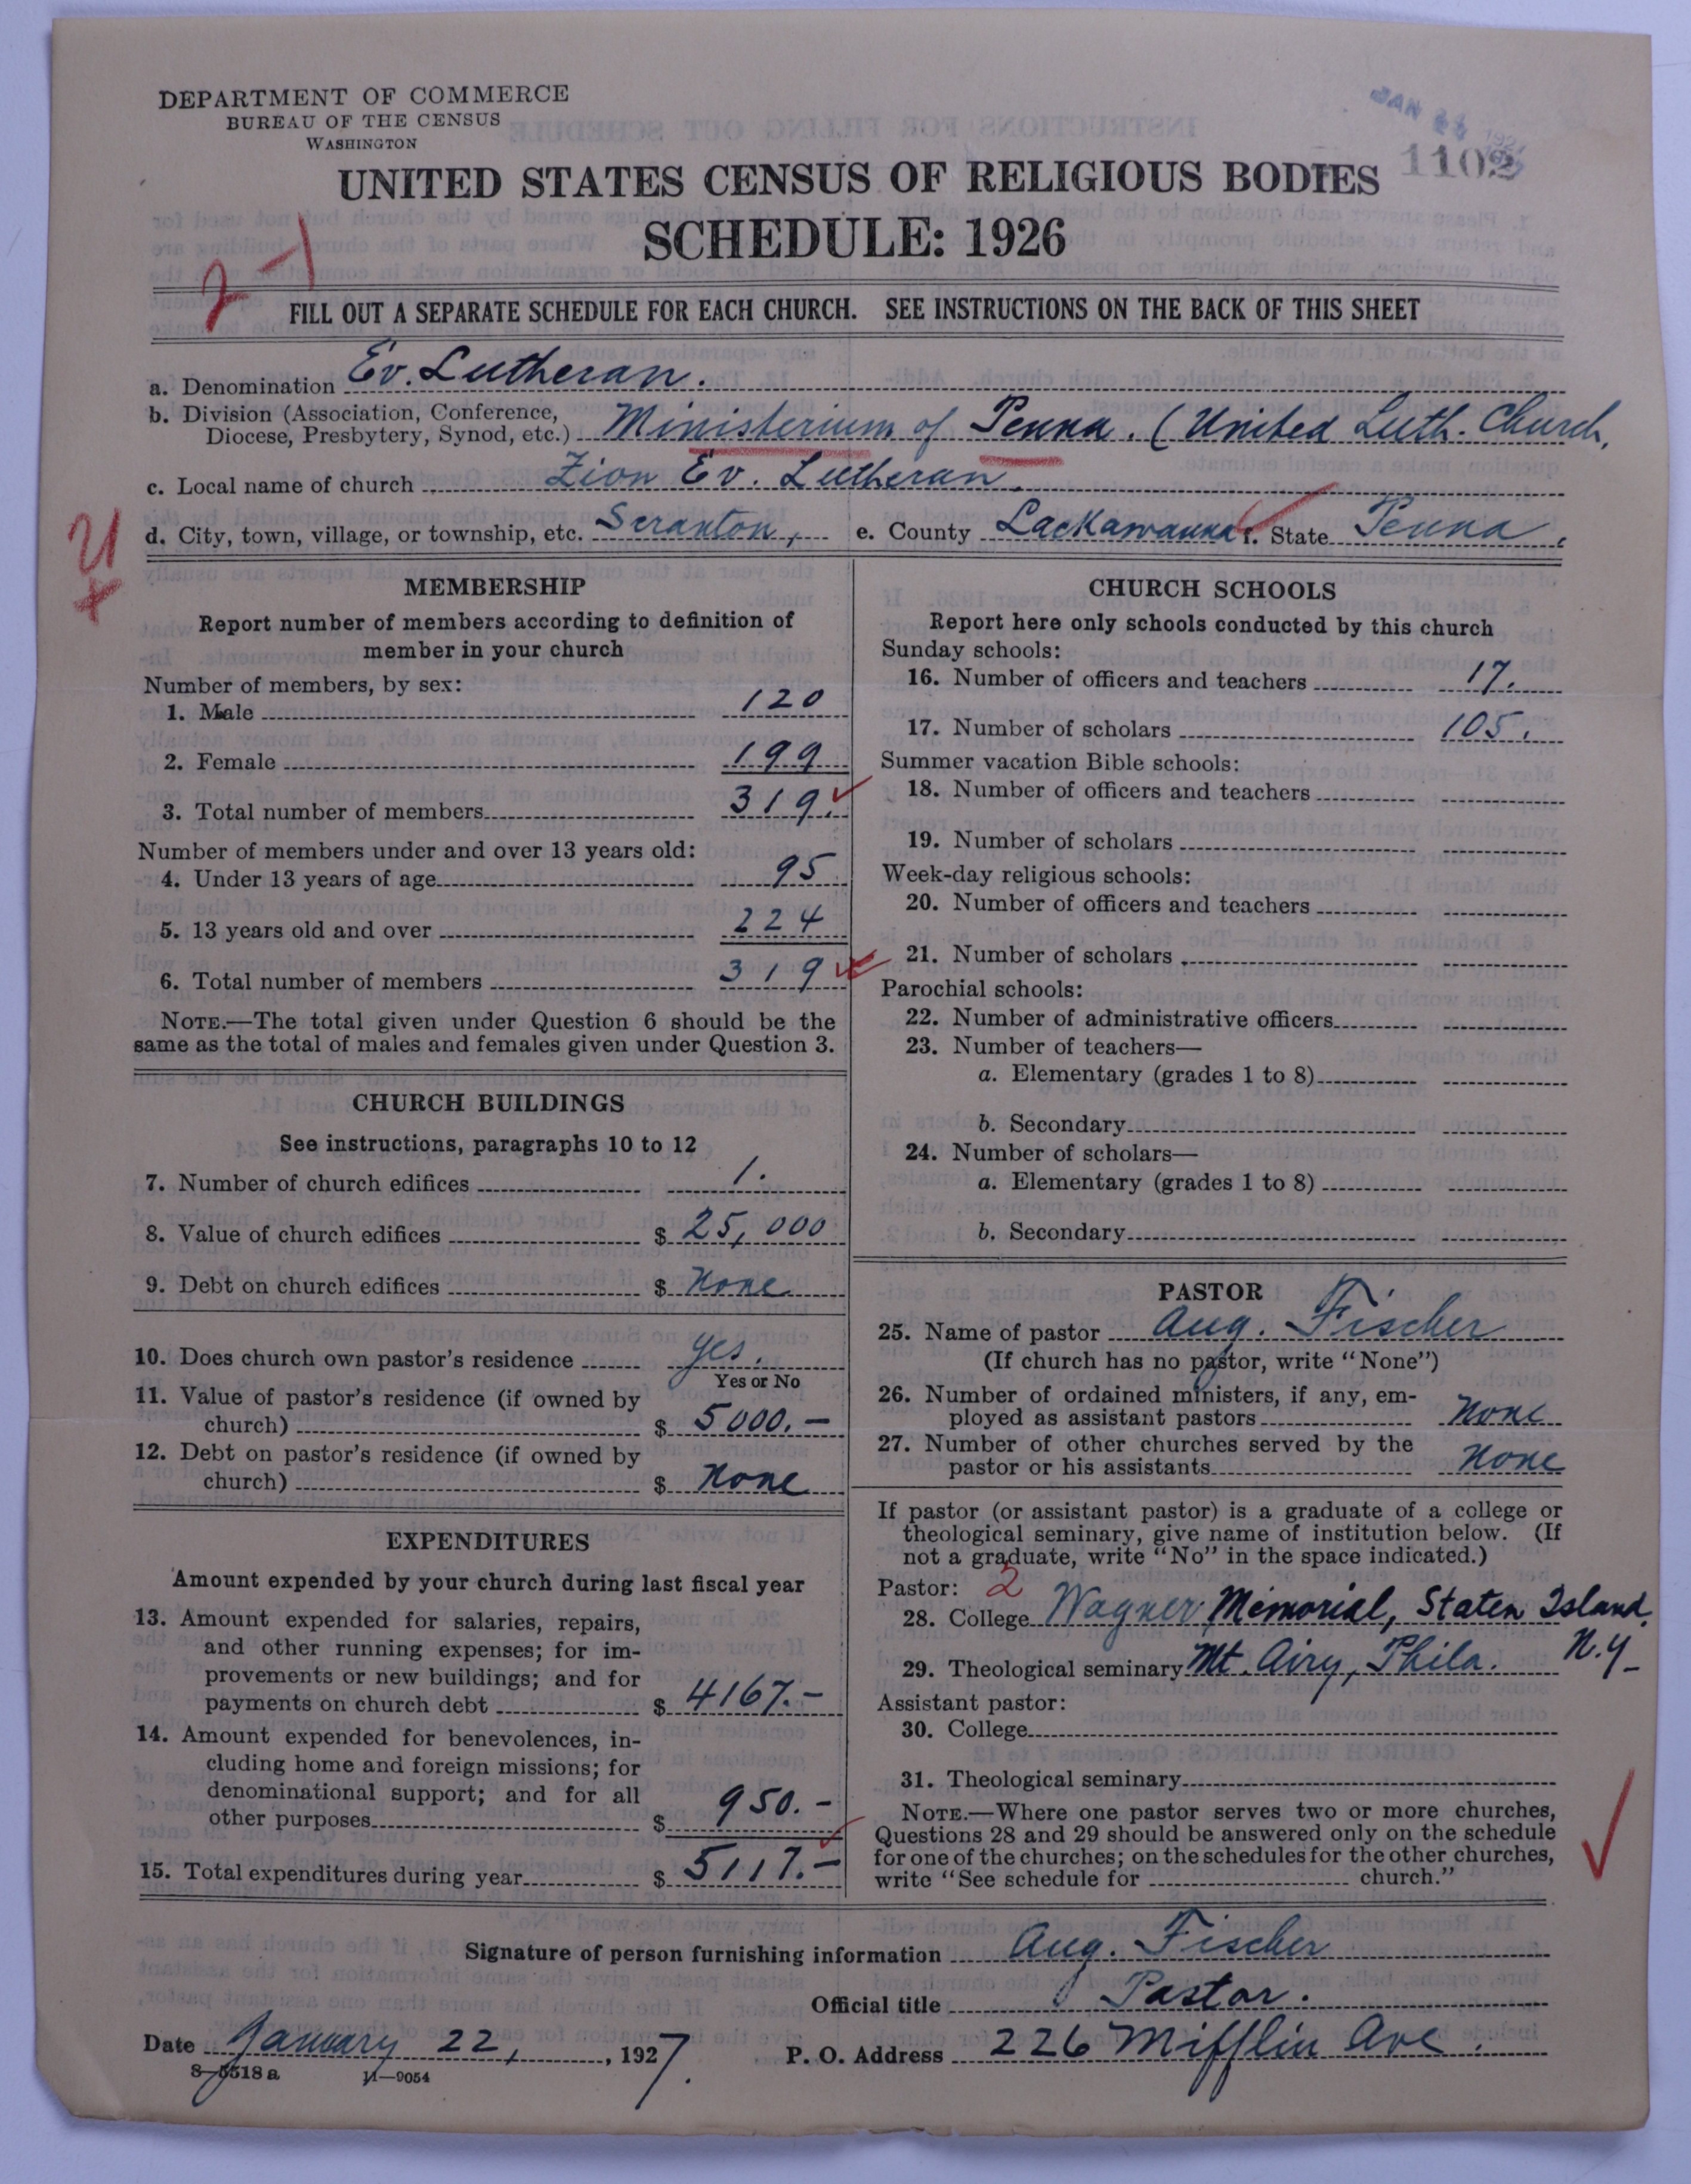 DEPARTMENT OF COMMERCE
BUREAU OF THE CENSUS
WASHINGTON
JAN
1102
UNITED STATES CENSUS OF RELIGIOUS BODIES
SCHEDULE: 1926
2-1
FILL OUT A SEPARATE SCHEDULE FOR EACH CHURCH. SEE INSTRUCTIONS ON THE BACK OF THIS SHEET
a. Denomination Ev. Lutheran.
b. Division (Association, Conference,
Diocese, Presbytery, Synod, etc.) Ministerium of Penna. (United Luth. Church,
c. Local name of church Zion Ev. Lutheran.
d. City, town, village, or township, etc. Scranton, e. County Lackawanna f. State Penna.
U
MEMBERSHIP
Report number of members according to definition of
member in your church
Number of members, by sex:
1. Male 120
2. Female 199
3. Total number of members 319.
Number of members under and over 13 years old:
4. Under 13 years of age 95
5. 13 years old and over 224
6. Total number of members 319
NOTE.—The total given under Question 6 should be the
same as the total of males and females given under Question 3.
CHURCH BUILDINGS
See instructions, paragraphs 10 to 12
7. Number of church edifices 1.
8. Value of church edifices $ 25,000
9. Debt on church edifices $ None
10. Does church own pastor's residence yes.
Yes or No
11. Value of pastor's residence (if owned by
church) $ 5000.—
12. Debt on pastor's residence (if owned by
church) $ None
EXPENDITURES
Amount expended by your church during last fiscal year
13. Amount expended for salaries, repairs,
and other running expenses; for im-
provements or new buildings; and for
payments on church debt $ 4167.—
14. Amount expended for benevolences, in-
cluding home and foreign missions; for
denominational support; and for all
other purposes $ 950.—
15. Total expenditures during year $ 5117.—
CHURCH SCHOOLS
Report here only schools conducted by this church
Sunday schools:
16. Number of officers and teachers 17.
17. Number of scholars 105.
Summer vacation Bible schools:
18. Number of officers and teachers
19. Number of scholars
Week-day religious schools:
20. Number of officers and teachers
21. Number of scholars
Parochial schools:
22. Number of administrative officers
23. Number of teachers—
a. Elementary (grades 1 to 8)
b. Secondary
24. Number of scholars—
a. Elementary (grades 1 to 8)
b. Secondary
PASTOR
25. Name of pastor Aug. Fischer
(If church has no pastor, write "None")
26. Number of ordained ministers, if any, em-
ployed as assistant pastors None
27. Number of other churches served by the
pastor or his assistants None
If pastor (or assistant pastor) is a graduate of a college or
theological seminary, give name of institution below. (If
not a graduate, write "No" in the space indicated.)
Pastor: 2
28. College Wagner Memorial, Staten Island,
N.Y—
29. Theological seminary Mt. Airy, Phila.
Assistant pastor:
30. College
31. Theological seminary
NOTE.—Where one pastor serves two or more churches,
Questions 28 and 29 should be answered only on the schedule
for one of the churches; on the schedules for the other churches,
write "See schedule for church."
Signature of person furnishing information Aug. Fischer
Official title Pastor.
Date January 22, , 1927. P. O. Address 226 Mifflin Ave.
8—5518a 11—9054